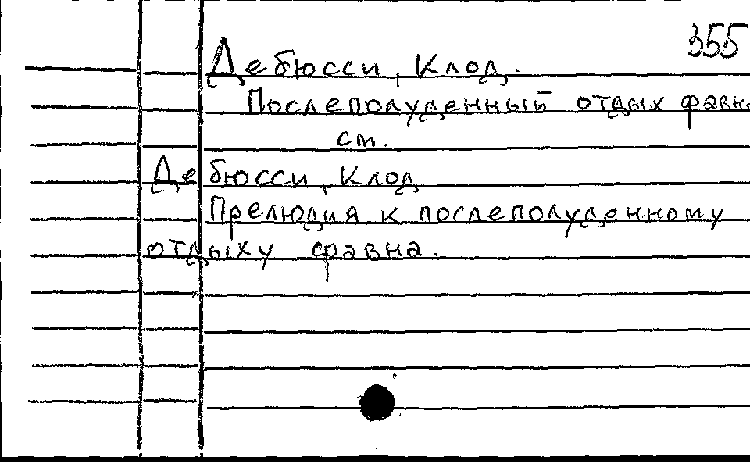 355
Дебюсси, Клод.
Послеполуденный отдых фавн
см.
Дебюсси, Клод
Прелюдия к послеполуденному
отдыху фавна.